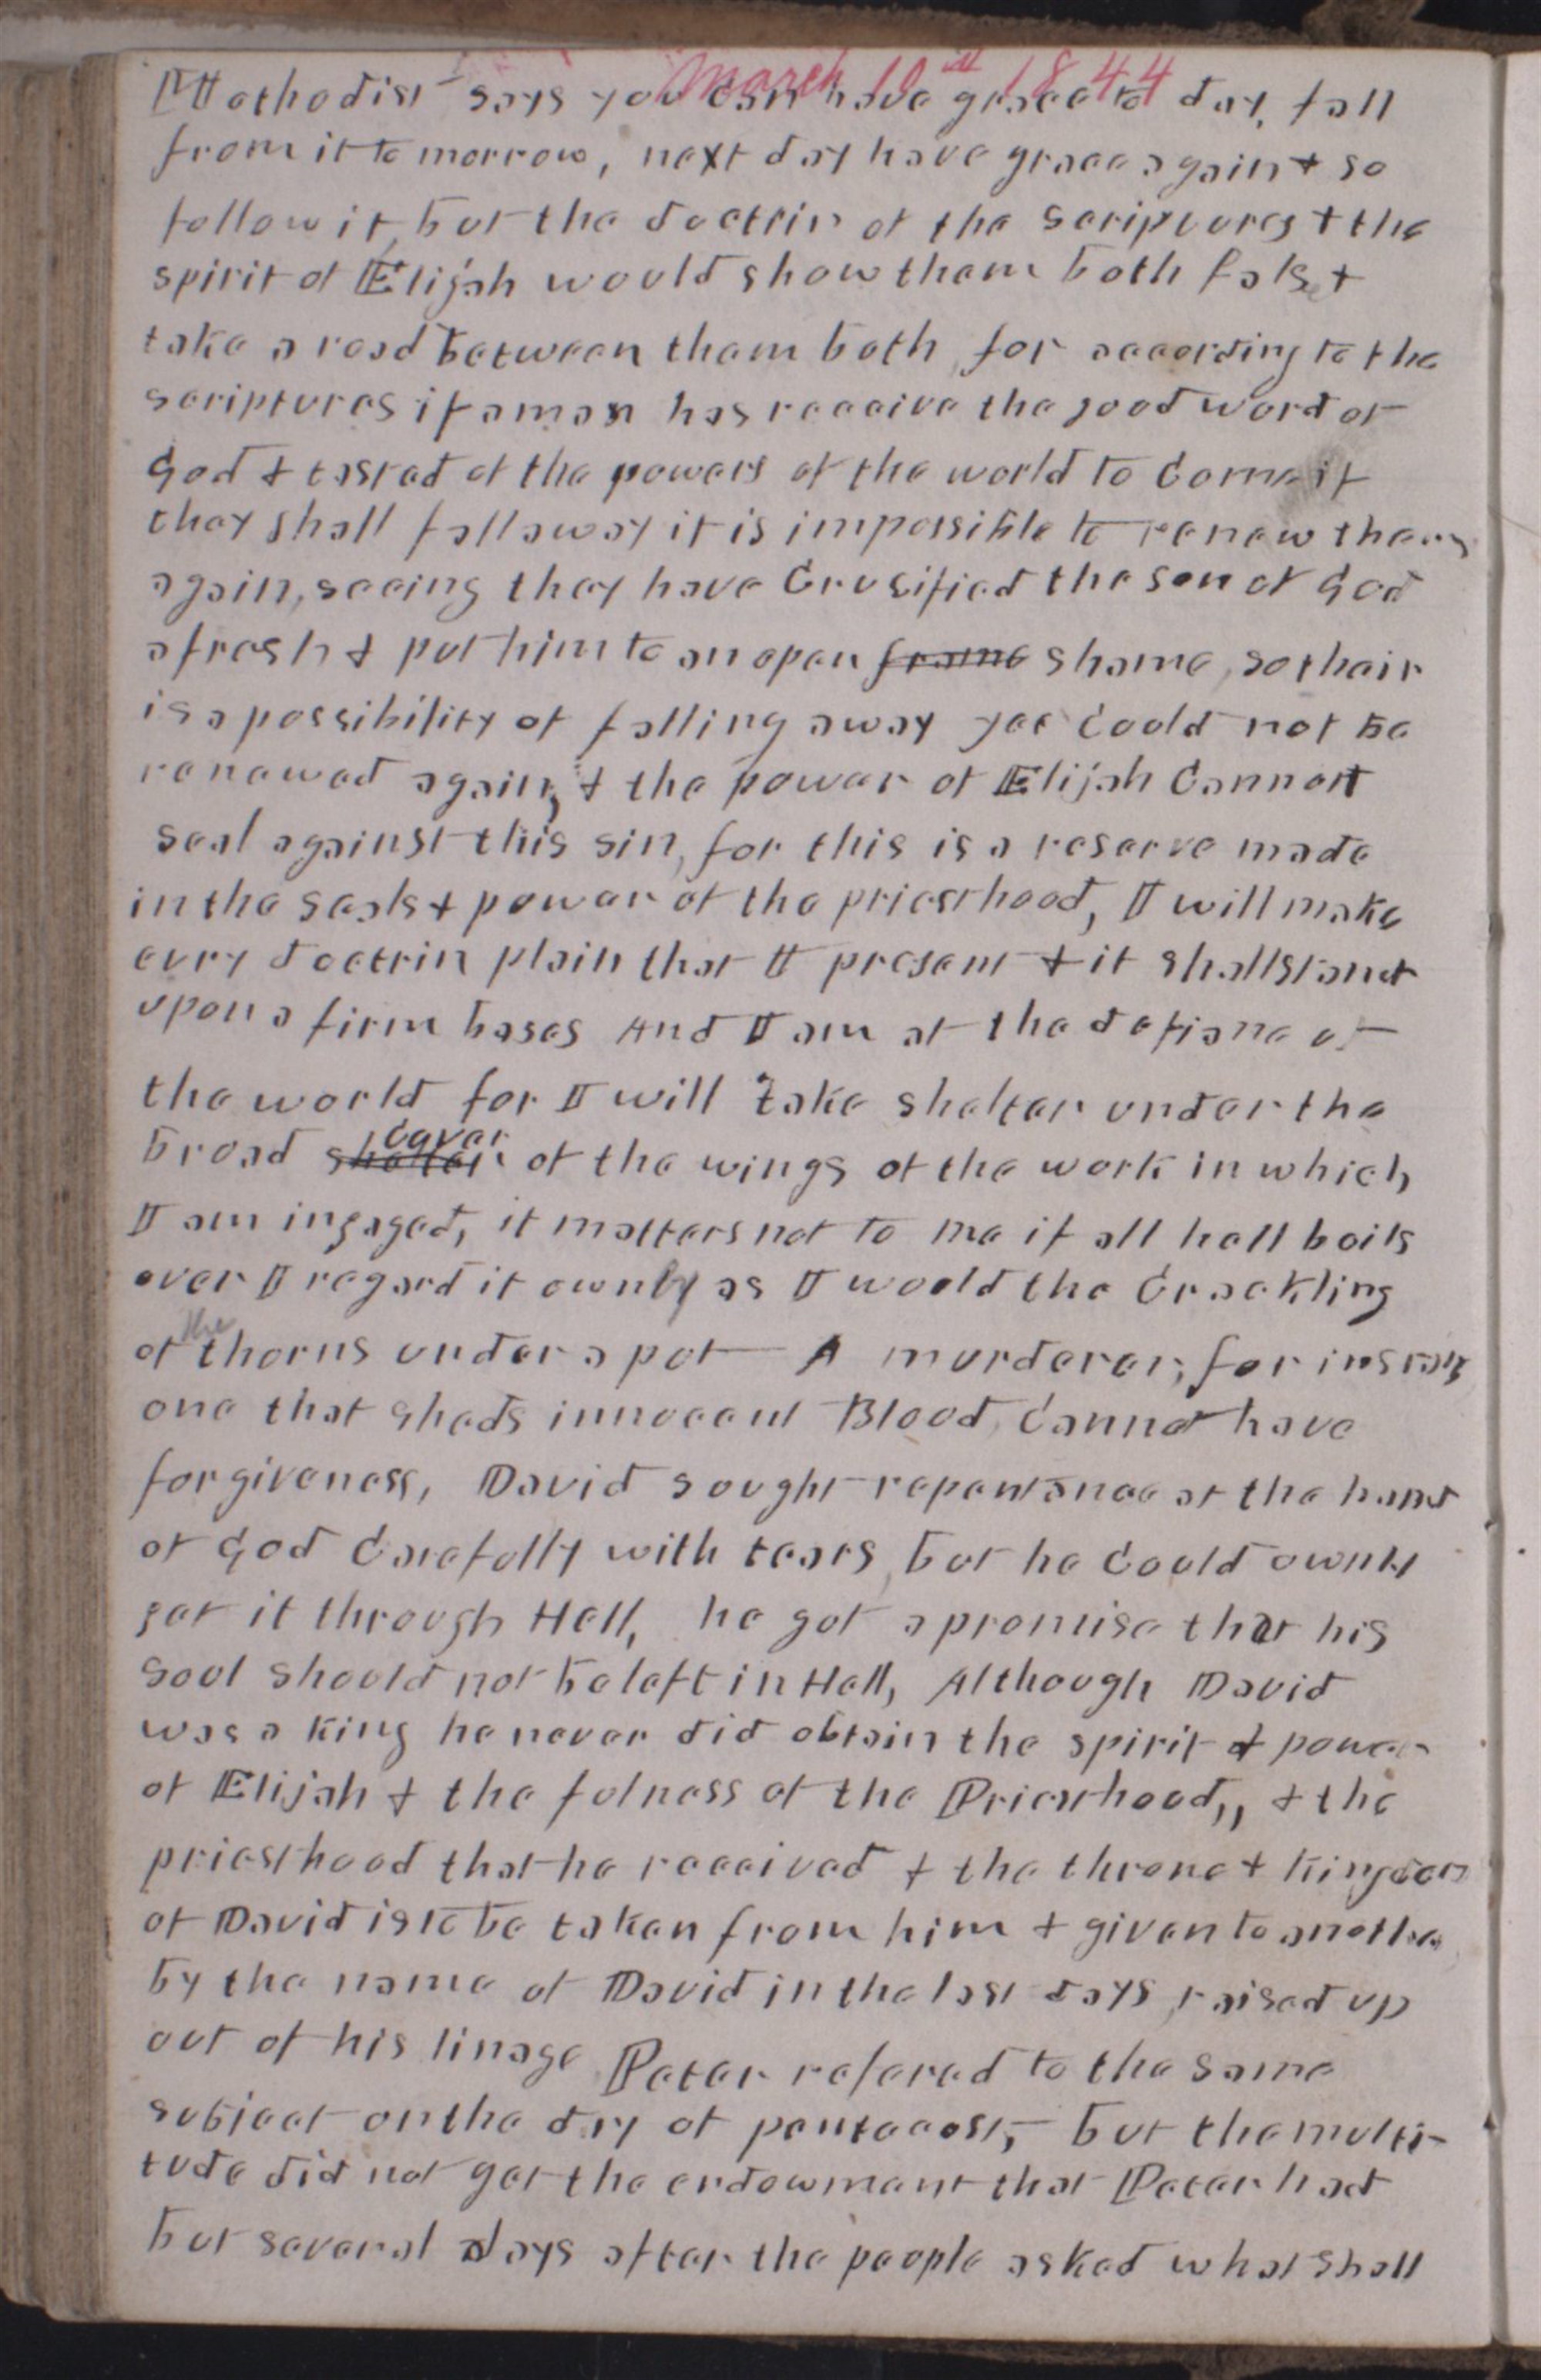 March 10th 1844
Methodist says you can have grace to day, fall
from it to morrow, next day have grace again & so
follow it, but the doctrin of the scriptures & the
spirit of Elijah would show them both false &
take a road between them both, for according to the
scriptures if a man has receive the good word of
God & tasted of the powers of the world to Come if
they shall fall away it is impossible to renew them
again, seeing they have Crusified the son of God
afresh & put him to an open frame shame, so thair
is a possibility of falling away yet Could not be
renewed again, & the power of Elijah Cannot
seal against this sin, for this is a reserve made
in the seals & power of the priesthood, I will make
evry doctrin plain that I present & it shall stand
upon a firm bases And I am at the defiance of
the world for I will take shelter under the
broad shelter Cover of the wings of the work in which
I am ingaged, it matters not to me if all hell boils
over I regard it ownly as I would the Crackling
of the thorns under a pot A murderer, for instance
one that sheds innocent Blood, Cannot have
forgiveness, David sought repentance at the hand
of God Carefully with tears, but he Could ownly
get it through Hell, he got a promise that his
soul should not be left in Hell, Although David
was a King he never did obtain the spirit & power
of Elijah & the fulness of the Priesthood,, & the
priesthood that he received & the throne & kingdom
of David is to be taken from him & given to another
by the name of David in the last days, raised up
out of his linage Peter refered to the same
subject on the day of pentecost, but the multi-
tude did not get the endowment that Peter had
but several days after the people asked what shall